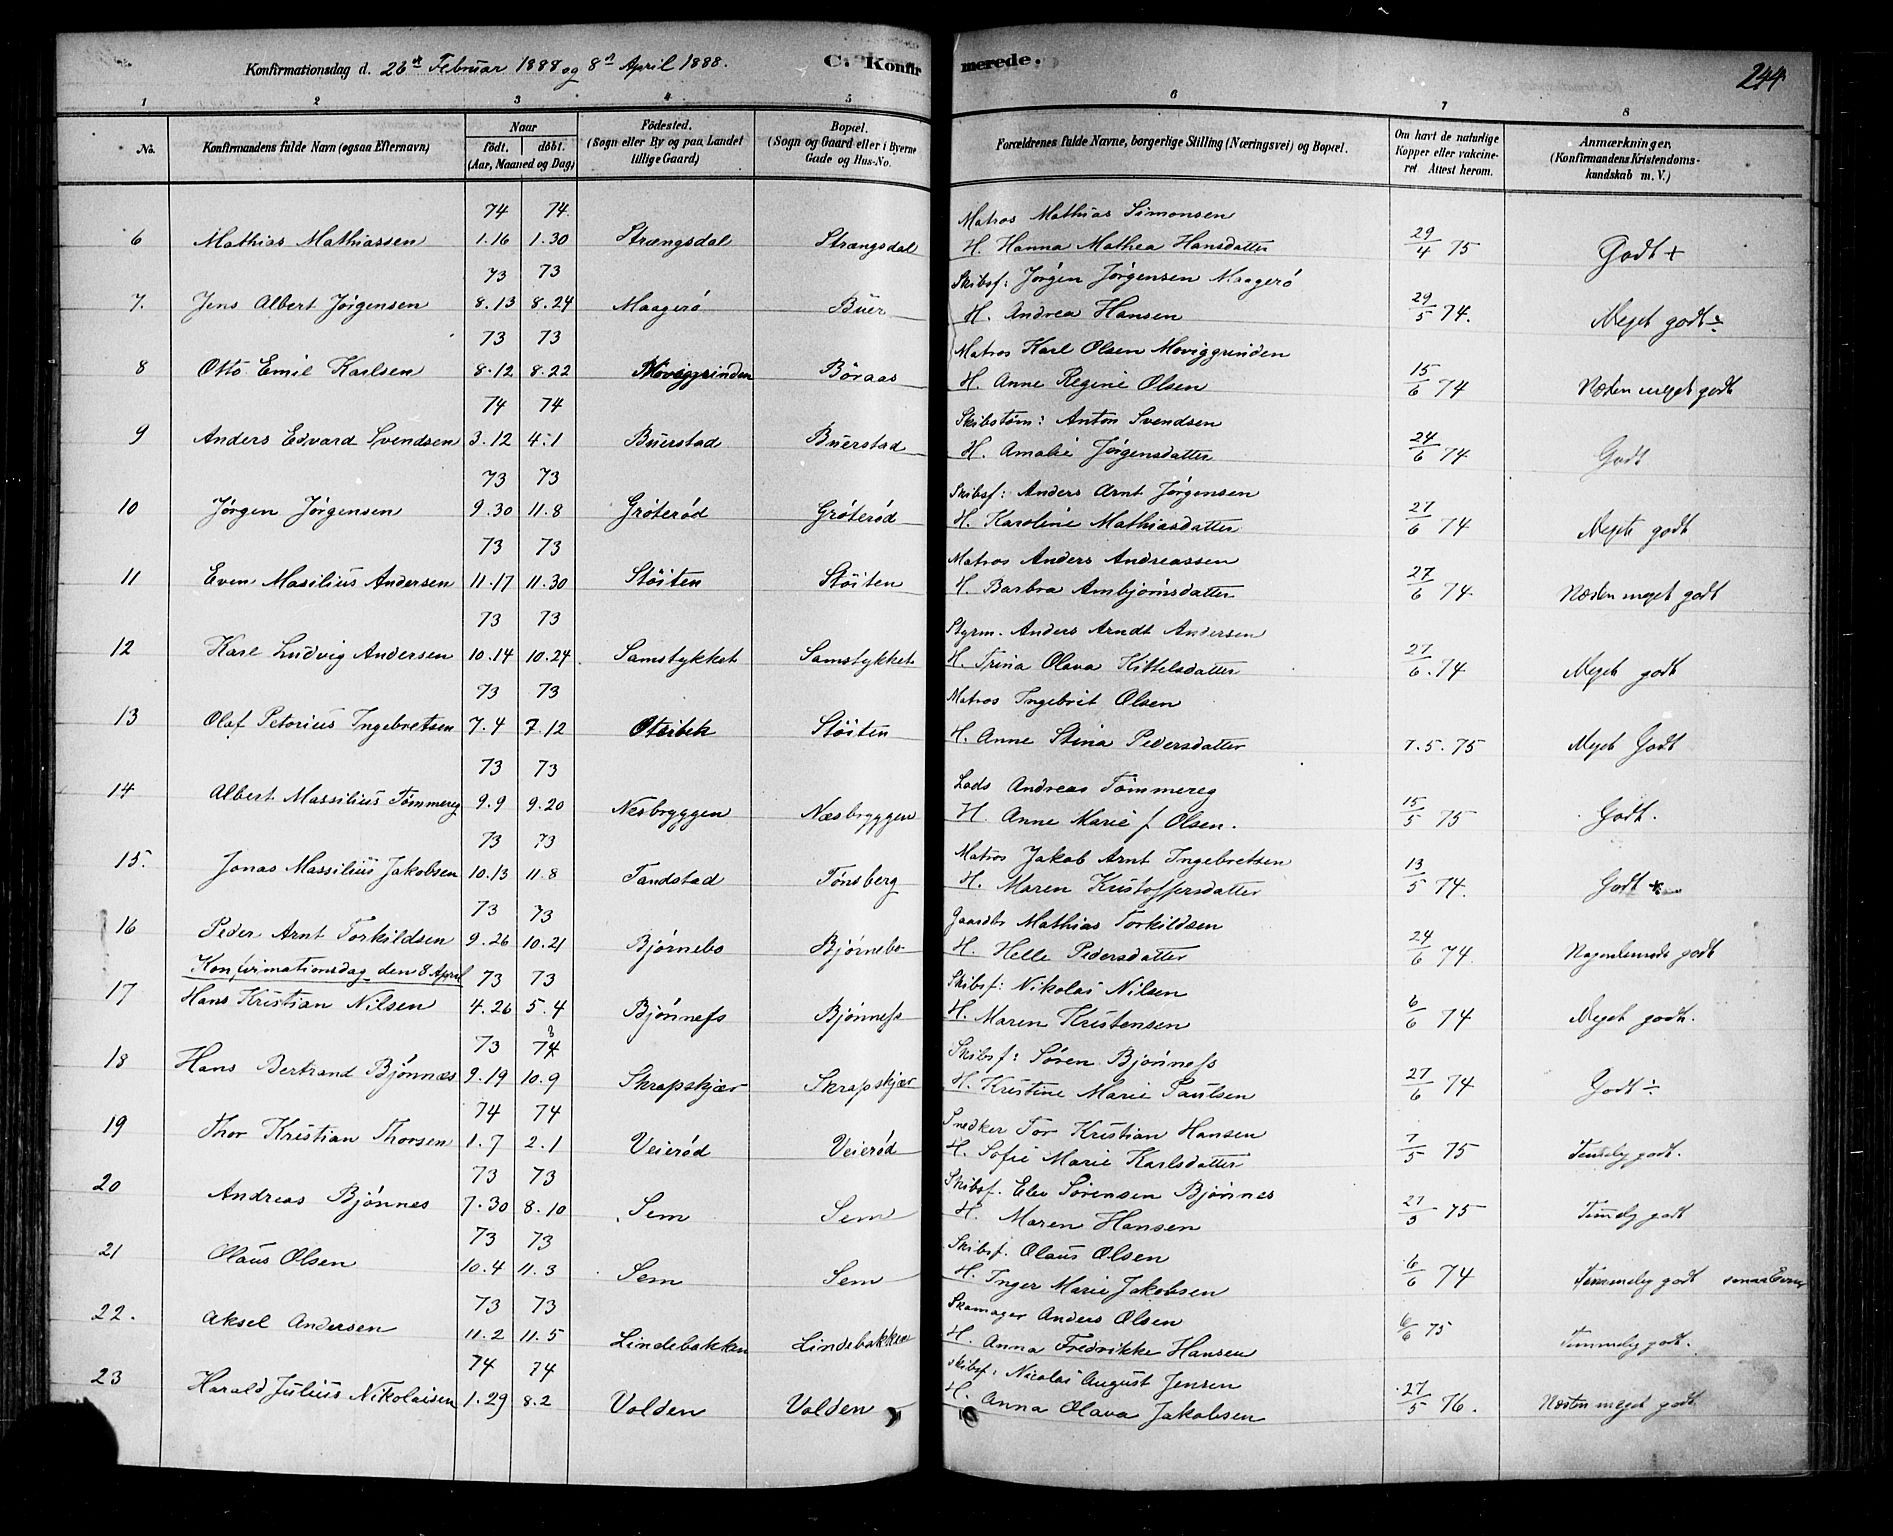 Konfirmationsdag d. 26de Februar 1888 og 8de April 1888. C. Konfir merede. 244
1 2 3 4 5 6 7 8
No. Konfirmandens fulde Navn (ogsaa Efternavn) Naar født. døbt. (Aar, Maaned og Dag) Födested. (Sogn eller By og paa Landet tillige Gaard) Bopæl. (Sogn og Gaard eller i Byerne Gade og Hus-No. Forældrenes fulde Navne, borgerlige Stilling (Næringsvei) og Bopæl. Om havt de naturlige Kopper eller vakcineret Attest herom. Anmærkninger, (Konfirmandens Kristendomskundskab m. V.)
74 74 Matros Mathias Simonsen
6 Mathias Mathiassen 1.16 1.30 Strængsdal Strængsdal H. Hanna Mathea Hansdatter 29/4 75 Godt +
73 73 Skibsf: Jørgen Jørgensen Maagerø
7. Jens Albert Jørgensen 8.13 8.24 Maagerö Buer H. Andrea Hansen 29/5 74. Meget godt ÷
73 73 Matros Karl Olsen Moviggrinden
8 Otto Emil Karlsen 8.12 8.22 Moviggrinden Böraas H. Anne Regine Olsen 15/6 74 Næsten meget godt
74 74 Skibstøm: Anton Svendsen
9 Anders Edvard Svendsen 3.12 4.1 Buerstad Buerstad H. Amalie Jørgensdatter 24/6 74 Godt
73 73 Skibsf: Anders Arnt Jørgensen
10 Jørgen Jørgensen 9.30 11.8 Gröterød Gröterød H. Karoline Mathiasdatter 27/6 74 Meget godt
73 73 Matros Anders Andreassen
11 Even Masilius Andersen 11.17 11.30 Stöiten Stöiten H. Barbra Arnbjørnsdatter 27/6 74 Næsten meget godt
73 73 Styrm. Anders Arndt Andersen
12 Karl Ludvig Andersen 10.14 10.24 Samstykket Samstykket H. Trina Olava Kittelsdatter 27/6.74 Meget godt
73 73 Matros Ingebrit Olsen
13 Olaf Petorius Ingebretsen 7.4 7.12 Oterbek Stöiten H. Anne Stina Pedersdatter 7.5.75 Meget Godt
73 73 Lods Andreas Tömmereg
14 Albert Massilius Tömmereg 9.9 9.20 Nesbryggen Næsbryggen H. Anne Marie f Olsen. 15/5 75 Godt.
73 73 Matros Jakob Arnt Ingebretsen
15. Jonas Massilius Jakobsen 10.13 11.8 Tandstad Tönsberg H. Maren Kristoffersdatter 13/5 74. Godt
73 73 Gaardbr Mathias Torkildsen
16 Peder Arnt Torkildsen 9.26 10.21 Bjørnebo Bjørnebo H. Helle Pedersdatter 24/6 74. Nogenlunde godt
Konfirmationsdag den 8 April 73 73 Skibsf: Nikolai Nilsen
17 Hans Kristian Nilsen 4.26 5.4 Bjönness Bjönness H. Maren Kristensen 6/6 74 Meget godt.
73 74 3 Skibsf: Sören Bjönness
18 Hans Bertrand Bjönnæs 9.19 10.9 Skrapskjær Skrapskjær H. Kristine Marie Paulsen 27/6 74 Godt ÷
74 74 Snedker Tor Kristian Hansen
19 Thor Kristian Thorsen 1.7 2.1 Veierød Veierød H. Sofie Marie Karlsdatter 7/5 75 Temmelig godt.
73 73 Skibsf. Elev Sørensen Bjønnes
20 Andreas Bjönnes 7.30 8.10 Sem Sem H. Maren Hansen 27/5 75 Temmelig godt
73 73 Skibsf. Olaus Olsen
21 Olaus Olsen 10.4 11.3 Sem Sem H. Inger Marie Jakobsen 6/6 74 Temmelig godt smaa Evner
73 73 Skomager Anders Olsen
22. Aksel Andersen 11.2 11.5 Lindebakken Lindebakken H. Anna Fredrikke Hansen 6/6 75 Temmelig godt.
74 74 Skibsf: Nicolai August Jensen
23 Harald Julius Nikolaisen 1.29 8.2 Volden Volden H. Anna Olava Jakobsen 27/5 76. Næsten meget godt